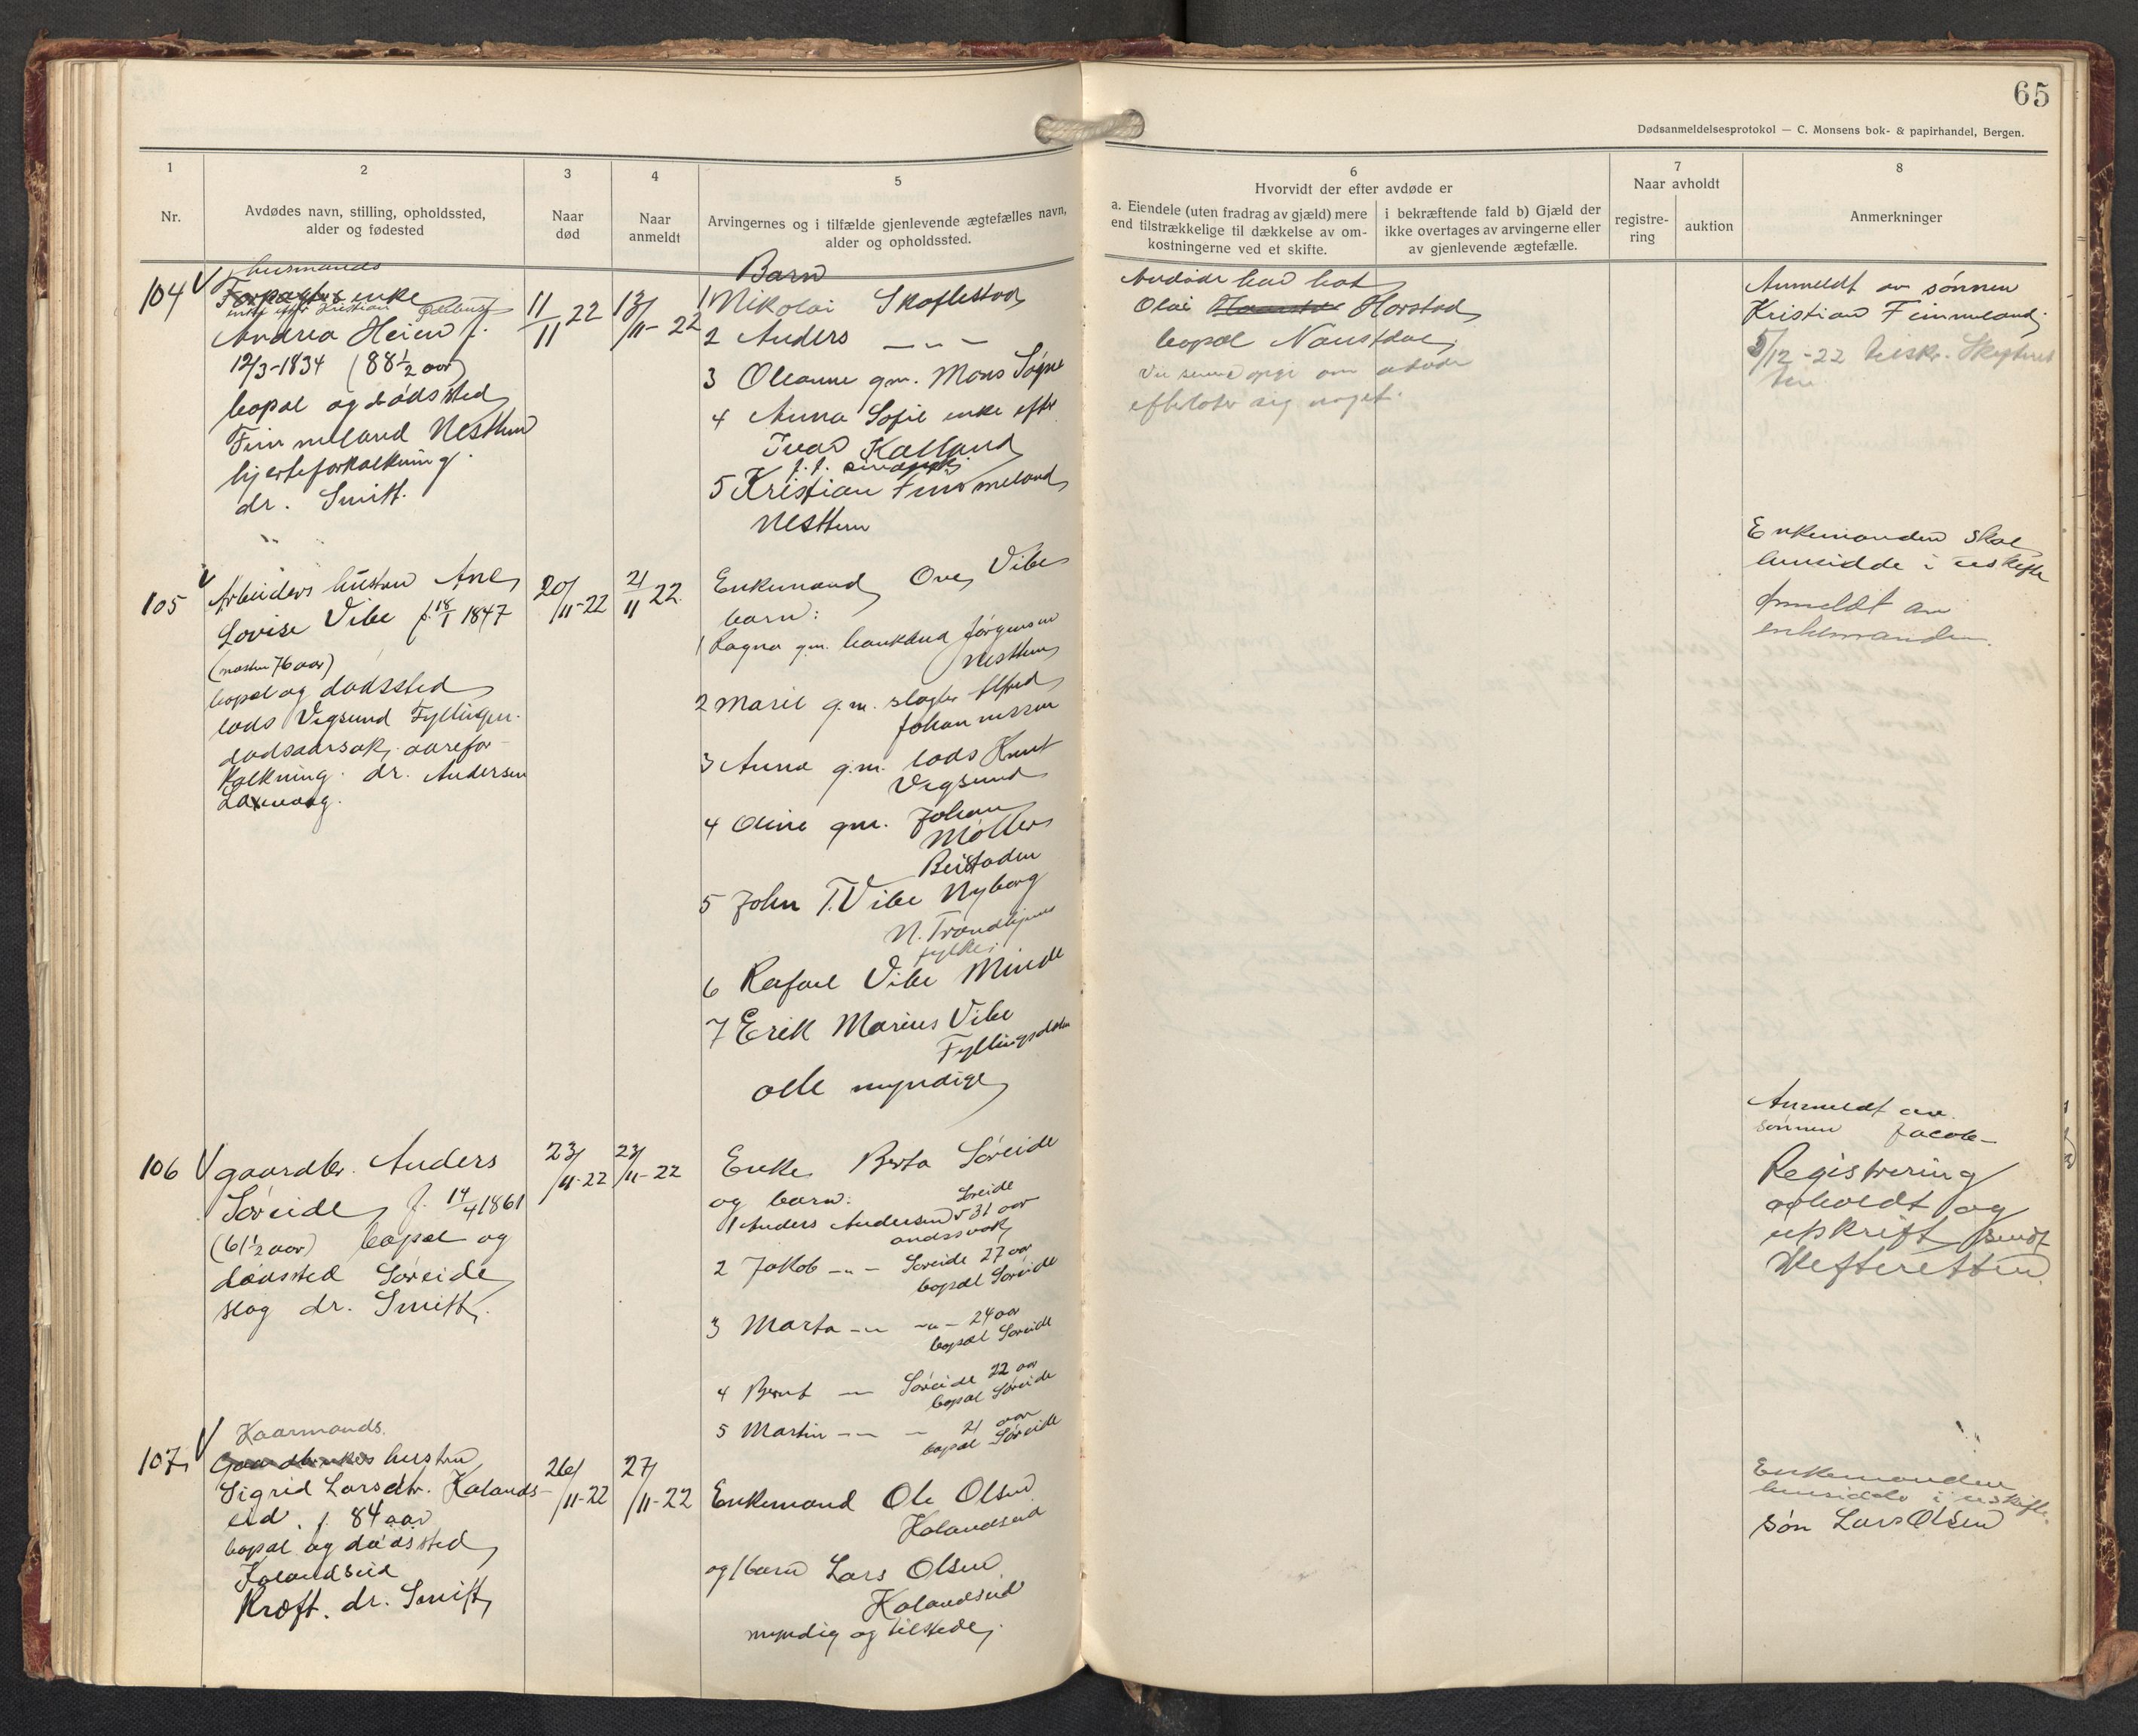 65
Dødsanmeldelsesprotokol — C. Monsens bok- & papirhandel, Bergen.
1
Nr.
2
Avdødes navn, stilling, opholdssted,
alder og fødested
3
Naar
død
4
Naar
anmeldt
5
Arvingernes og i tilfælde gjenlevende ægtefælles navn,
alder og opholdssted.
6
Hvorvidt der efter avdøde er
a. Eiendele (uten fradrag av gjæld) mere
end tilstrækkelige til dækkelse av om-
kostningerne ved et skifte.
i bekræftende fald b) Gjæld der
ikke overtages av arvingerne eller
av gjenlevende ægtefælle.
7
Naar avholdt
registre-
ring
auktion
8
Anmerkninger
104
husmands
enke
enke efter Kristian
Andrea Heien f.
12/3-1834 (88½ aar)
bopæl og dødssted
Fimmeland Nesttun
hjerteforkalkning.
dr. Smitt.
11/11 22
13/11-22
Barn
1 Nikolai Skaflestad
2 Anders — " —
3 Oleanne gm. Mons Søgne
4 Anna Sofie enke efter
Ivar Kalland
5 Kristian Fimmeland
Nesttun
Avdøde har hat
Olai Horstad
bopæl Naustdal
om avdøde
efterlater sig noget.
Anmeldt av sønnen
Kristian Fimmeland
5/12-22 tilskr. Skifteret
ten
105
Arbeiders hustru Ane
Lovise Vibe f. 18/1 1847
(næsten 76 aar)
bopæl og dødssted
lods Vegsund Fyllingen.
dødsaarsak, aarefor-
kalkning. dr. Andersen
Laxevaag.
20/11-22
21/11 22
Enkemand Ove Vibe
barn:
1 Ragna gm. Jørgensen
Nesttun
2 Marie g.m. slagter Alfred
Johannessen
3 Anna g.m. lods Knut
Vegsund
4 Oline gm. Johan
Møller
Beistaden
5 John T. Vibe Nyborg
N. Trondhjems
fylke.
6 Rafael Vibe Minde
7 Erik Marius Vibe
Fyllingsdalen
alle myndige
Enkemanden skal
hensidde i uskifte
Anmeldt av
enkemanden.
106
gaardbr. Anders
Søreide f. 14/4 1861
(61½ aar) bopæl og
dødssted Søreide
slag dr. Smitt.
23/11-22
23/11-22
Enke Berta Søreide
og barn:
1 Anders Andersen Søreide 31 aar
andssvak
2 Jakob — " — Søreide 27 aar
bopæl Søreide
3 Marta — " — " — 24 aar
bopæl Søreide
4 Bernt — " — Søreide 22 aar
bopæl Søreide
5 Martin — " — 21 aar
bopæl Søreide
Anmeldt av
sønnen Jacob—
Registrering
avholdt og
utskrift sendt
skifteretten.
107
Kaarmands
Gaardbrukers hustru
Sigrid Larsdtr. Kalands-
eid. f. 84 aar
bopæl og dødssted
Kalandseid
Kræft. dr. Smitt
26/11-22
27/11-22
Enkemand Ole Olsen
Kalandseid
og 1 barn Lars Olsen
Kalandseid
myndig og tilstede.
Enkemanden
hensidde i uskifte.
søn Lars Olsen